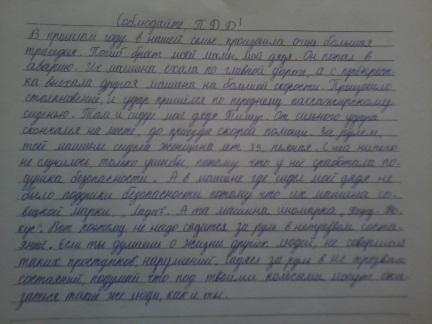 Соблюдайте, П Д Д!
В прошлом году в нашей семье произошла очень большая
трагедия. Погиб брат моей мамы, мой дядя. Он попал в
аварию. Их машина ехала по главной дороге, а с прикрыж-
ка выехала другая машина на большой скорости. Произошло
столкновений, и удар пришёлся по переднему пассажирскому
сиденью. Там и сидел мой дядя Тимур. От сильного удара
скончался на месте до приезда скорой помощи. За рулем,
той машины сидела женщина лет 33, пьяная. С ней ничего
не случилось, только ушибы, потому что у неё сработала по-
душка безопасности. А в машине где сидел мой дядя не
было подушки безопасности потому что их машина со-
вецкой марки, "Лада". А та машина иномарка,
Вот поэтому не надо садится за руль в нетрезвом соста-
яний. Если ты думаешь о жизни других людей, не совершай
таких проступков, нарушений. Садясь за руль в не трезвом
состояний, подумай что под твоими колёсами могут ока-
заться такие же люди, как и ты.